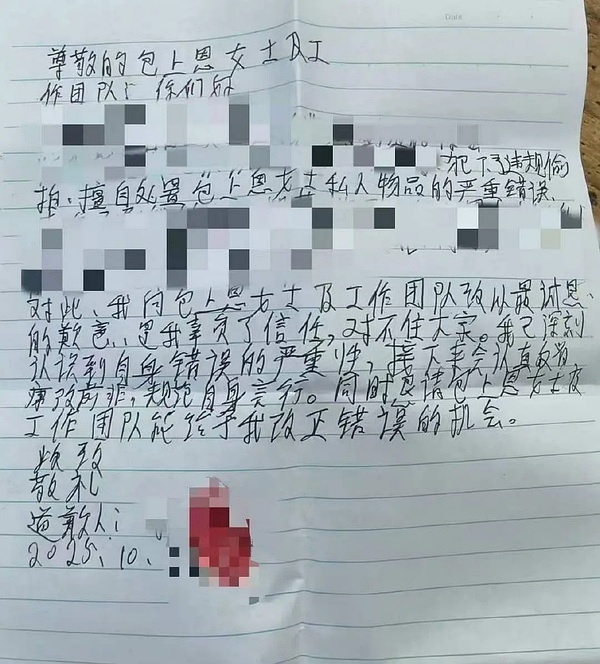 Date
尊敬的包上恩女士及工
作团队：你们好
犯下了违规偷
拍、擅自处置包上恩女士私人物品的严重错误、
对此、我向包上恩女士及工作团队致以最诚恳
的歉意、是我辜负了信任，对不住大家。我已深刻
认识到自身错误的严重性，接下来会认真改
痛改前非，规范自身言行。同时恳请包上恩女士及
工作团队能给予我改正错误的机会。
此致
敬礼
道歉人：
2025、10、